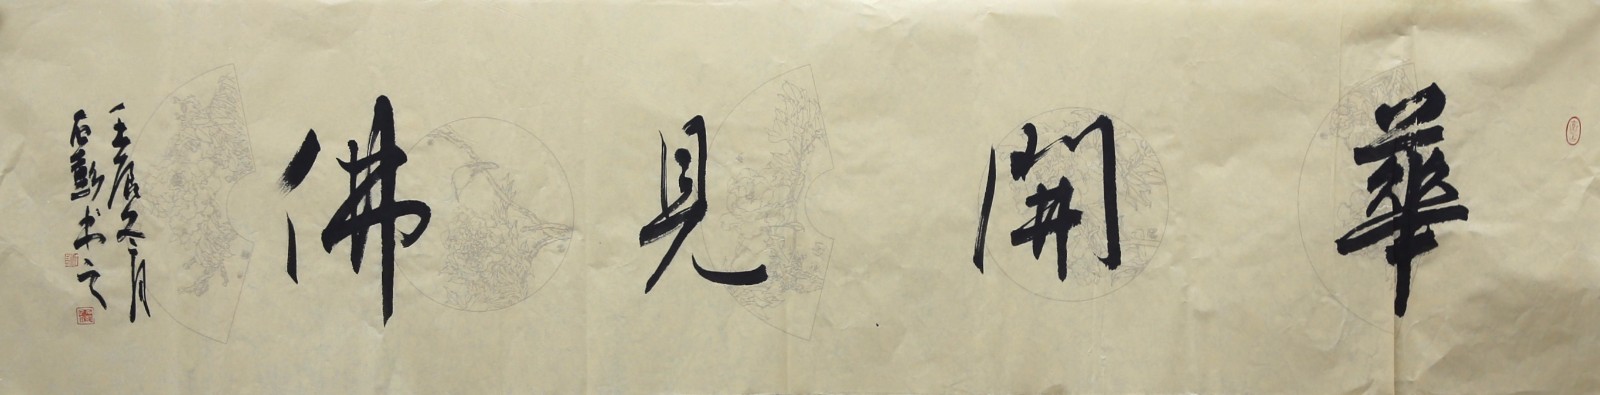 華開見佛
壬辰冬月
石勳书之